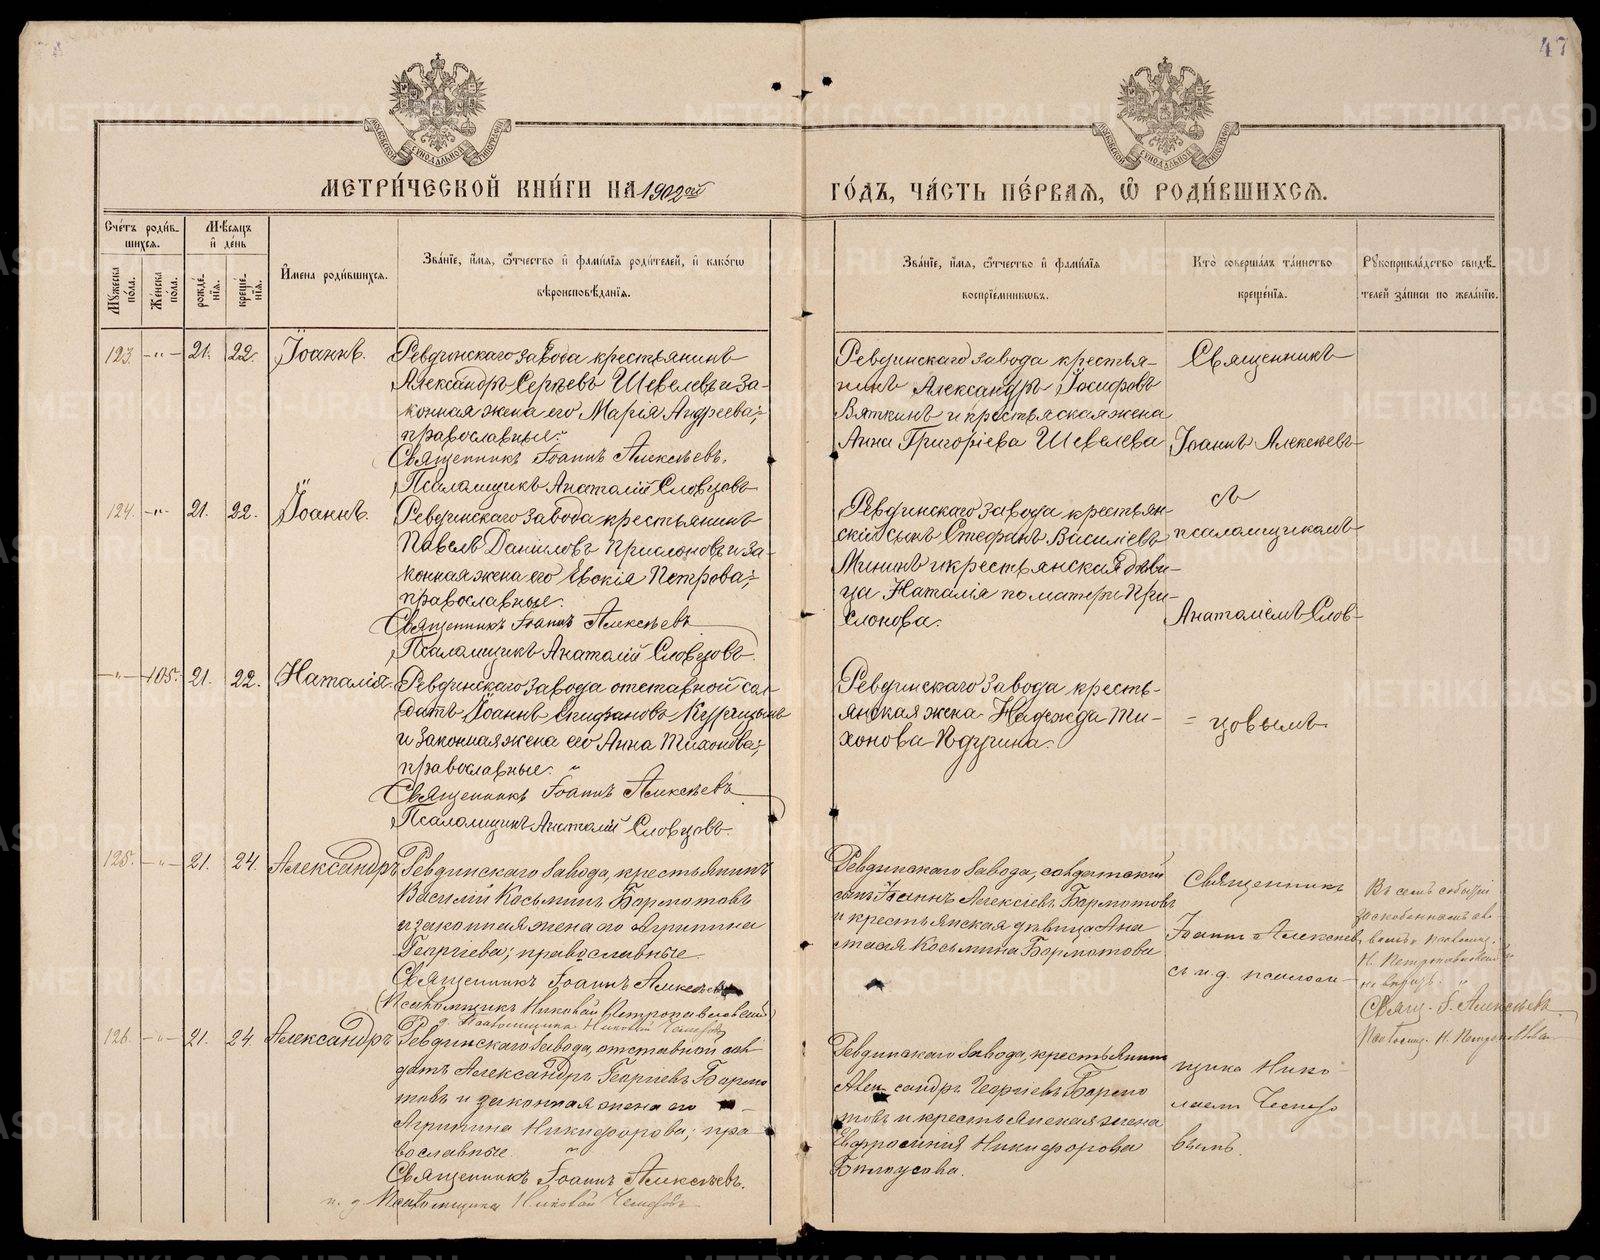 47
МЕТРИ́ЧЕСКОЙ КНИ́ГИ НА 1902ой ГО́ДЪ, ЧА́СТЬ ПЕ́РВАЯ, Ѽ РОДИ́ВШИХСЯ.
Сче́тъ роди́в-
шихся.
Мꙋ́жеска по́ла.
Же́нска по́ла.
Мѣ́сяцъ
и҆ де́нь
рожде́-
нїя.
креще́-
нїя.
И҆мена роди́вшихся.
Зва́нїе, и҆́мя, ѻ҆́тчество и҆ фами́лїя роди́телей, и҆ како́гѡ
вѣроисповѣ́данїя.
Зва́нїе, и҆́мя, ѻ҆́тчество и҆ фами́лїя
воспрїе́мникѡвъ.
Кто̀ соверша́лъ та́инство
креще́нїя.
Рꙋкоприкла́дство свидѣ́-
телей за́писи по жела́нїю.
123. -"- 21. 22. Іоаннъ.
Ревдинскаго завода крестьянинъ
Александръ Сергѣевъ Шевелевъ и за-
конная жена его Марія Андреева;
православные.
Священникъ Іоаннъ Алексѣевъ.
Псаломщикъ Анатолій Словцовъ
Ревдинскаго завода крестья-
нинъ Александръ Іосифовъ
Вяткинъ и крестьяская жена
Анна Григоріева Шевелева
Священникъ
Іоаннъ Алексѣевъ
124. -"- 21. 22. Іоаннъ.
Ревдинскаго завода крестьянинъ
Павелъ Даніиловъ Прислоновъ и за-
конная жена его Евокія Петрова;
православные.
Священникъ Іоаннъ Алексѣевъ
Псаломщикъ Анатолій Словцовъ.
Ревдинскаго завода крестьян-
скій сынъ Стефанъ Василіевъ
Мининъ и крестьянская дѣви-
ца Наталія по матери При-
слонова.
съ
псаломщикомъ
Анатоліемъ Слов-
-"- 105. 21. 22. Наталія.
Ревдинскаго завода отставной сол-
датъ Іоаннъ
и законная жена его Анна Тихонова;
православные.
Священникъ Іоаннъ Алексѣевъ
Псаломщикъ Анатолій Словцовъ.
Ревдинскаго завода кресть-
янская жена Надежда Ти-
хонова
= цовымъ.
125. -"- 21. 24. Александръ
Ревдинскаго завода, крестьянинъ
Василій Косьминъ Бормотовъ
и законная жена его Агрипина
Георгіева; православные.
Священникъ Іоаннъ Алексѣевъ
Псаломщикъ Николай Петропавловскій
Псаломщика Николай
Ревдинскаго завода, солдатскій
сынъ Іоаннъ Алексіевъ Бормотовъ
и крестьянская дѣвица Ана
стасія Косьмина Бормотова
Священникъ
Іоаннъ Алексѣевъ
съ и.д. псалом-
Свящ. І. Алексѣевъ
126. -"- 21. 24. Александръ
Ревдинскаго завода, отставной сол
датъ Александръ Георгіевъ Бормо
товъ и законная жена его
Агрипина Никифорова; пра
вославные.
Священникъ Іоаннъ Алексѣевъ.
и. д. Псаломщика Николай
Ревдинскаго завода, крестьянинъ
Александръ Георгіевъ Бормо
товъ и крестьянская жена
Евфросинія Никифорова
щика Нико
лаемъ
вымъ.
METRIKI.GASO-URAL.RU